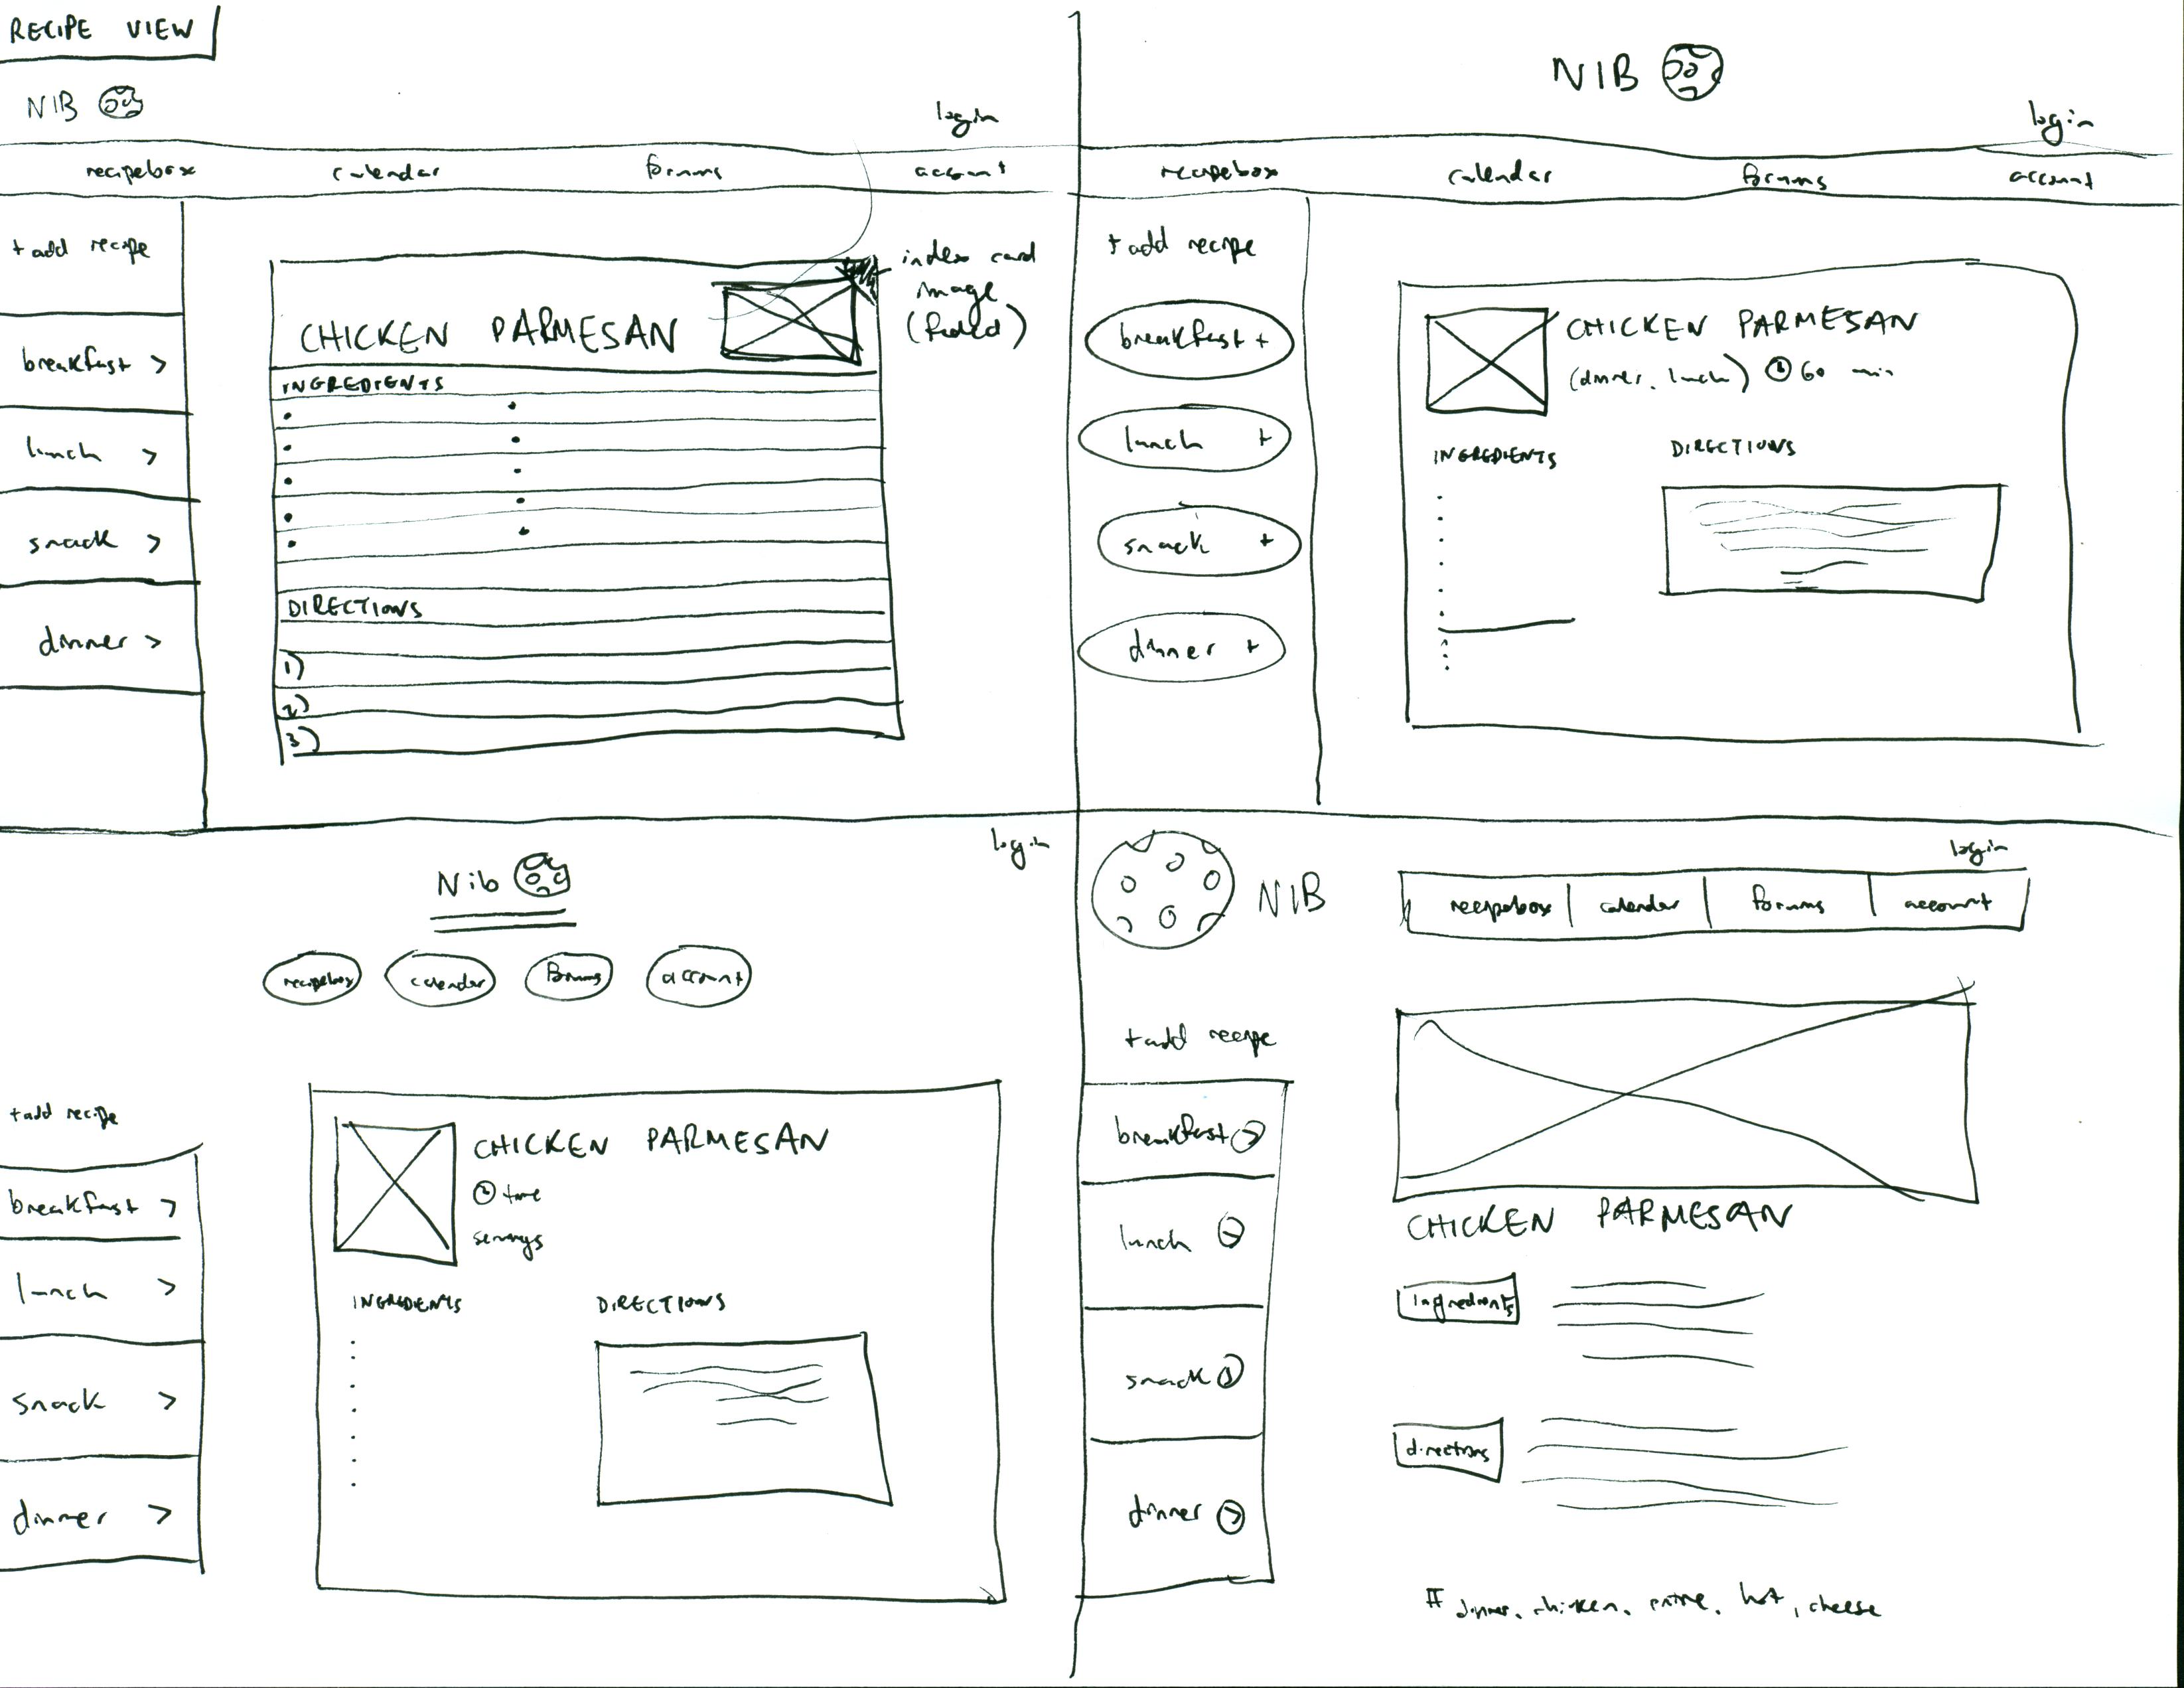 RECIPE VIEW
NIB
login
recipebox calendar forums account
+ add recipe
breakfast >
lunch >
snack >
dinner >
CHICKEN PARMESAN
index card
image
(faded)
INGREDIENTS
DIRECTIONS
1)
2)
3)
NIB
login
recipebox calendar forums account
+ add recipe
breakfast +
lunch +
snack +
dinner +
CHICKEN PARMESAN
(dinner, lunch) 60 min
INGREDIENTS DIRECTIONS
login
Nib
recipebox calendar forums account
+ add recipe
breakfast >
lunch >
snack >
dinner >
CHICKEN PARMESAN
time
servings
INGREDIENTS DIRECTIONS
NIB
login
recipebox calendar forums account
+ add recipe
breakfast >
lunch
snack
dinner >
CHICKEN PARMESAN
ingredients
directions
# dinner, chicken, entree, hot, cheese